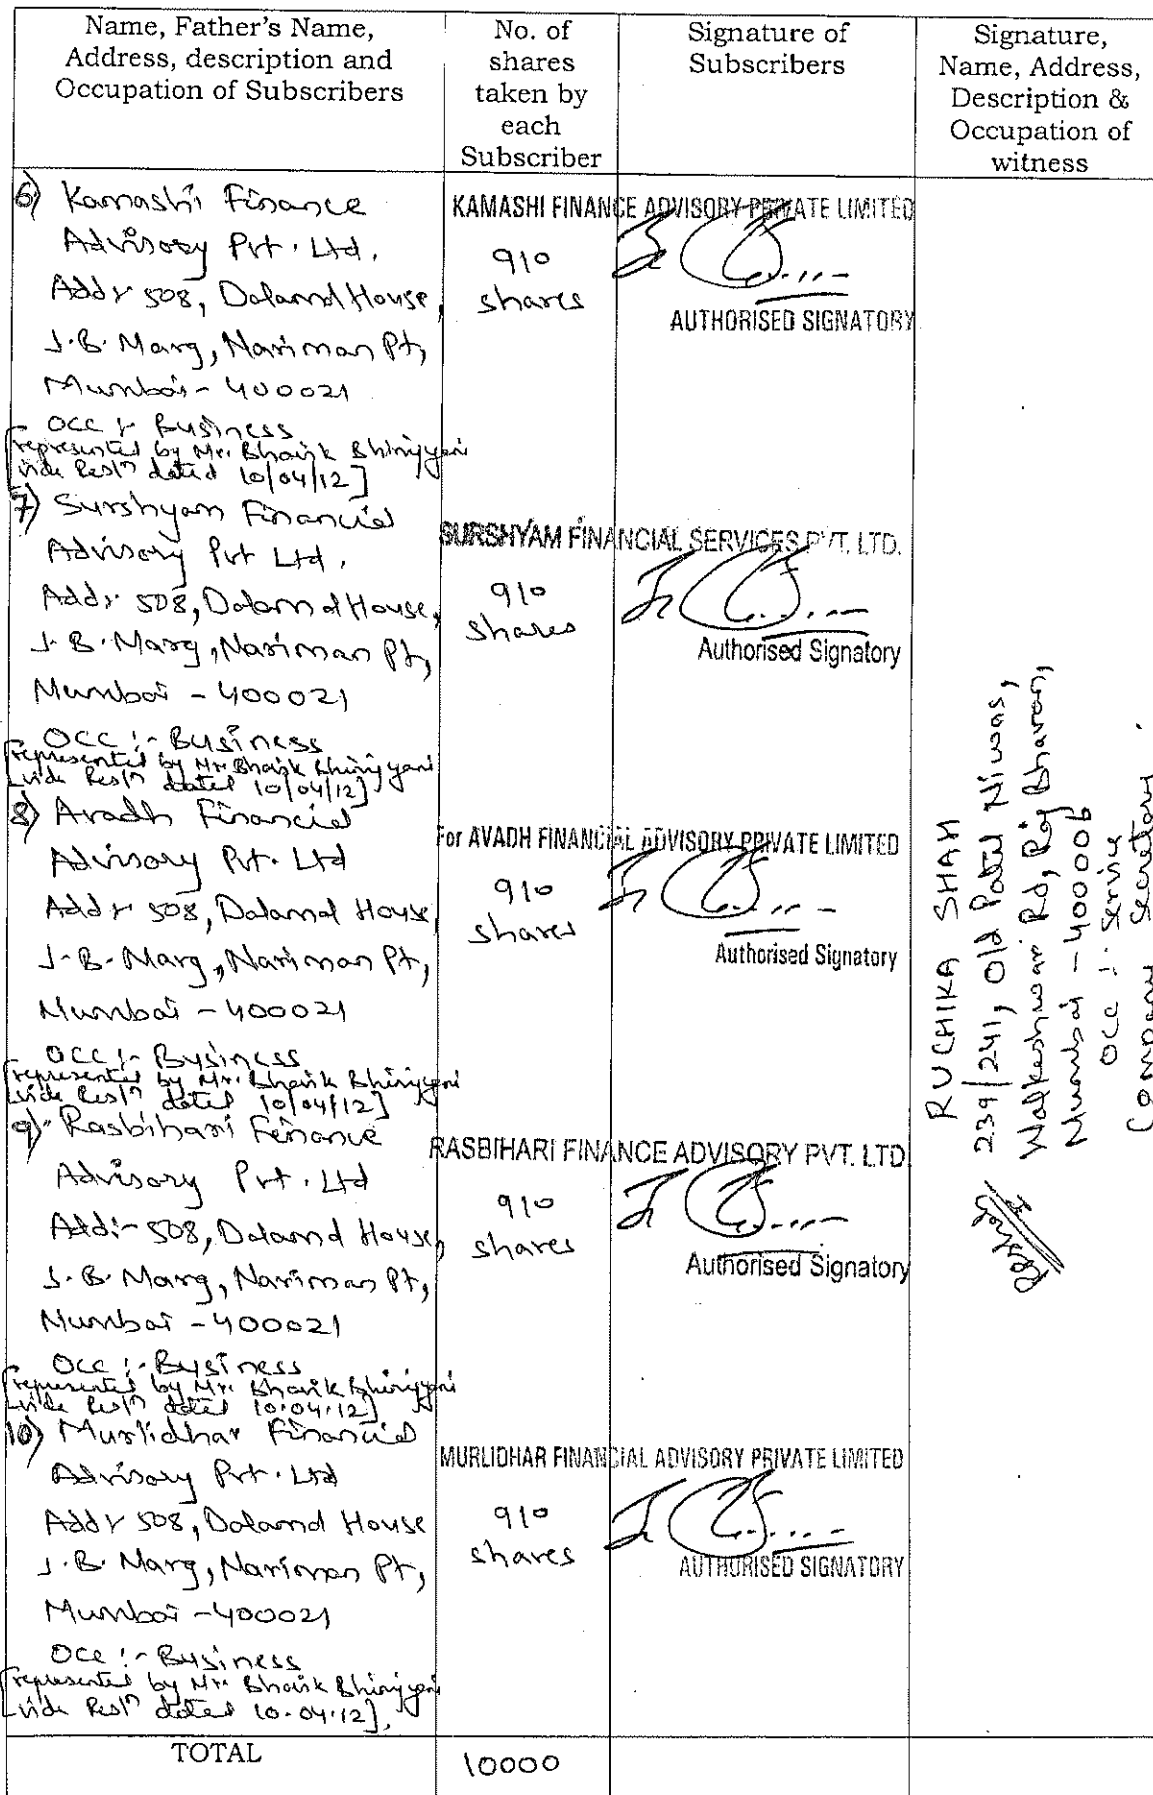 Name, Father's Name,
Address, description and
Occupation of Subscribers
No. of
shares
taken by
each
Subscriber
Signature of
Subscribers
Signature,
Name, Address,
Description &
Occupation of
witness
6) Kamashi Finance
Advisory Pvt. Ltd.
Addr 508, Dalamal House,
J.B. Marg, Nariman Pt,
Mumbai - 400021
Occ :- Business
[represented by Mr. Bhavik Bhimjyani
vide Resln dated 10/04/12]
910
shares
KAMASHI FINANCE ADVISORY PRIVATE LIMITED
AUTHORISED SIGNATORY
7) Surshyam Financial
Advisory Pvt Ltd.
Addr 508, Dalamal House,
J.B. Marg, Nariman Pt,
Mumbai - 400021
Occ :- Business
[represented by Mr Bhavik Bhimjyani
vide Resln dated 10/04/12]
910
shares
SURSHYAM FINANCIAL SERVICES PVT. LTD.
Authorised Signatory
8) Avadh Financial
Advisory Pvt. Ltd
Addr 508, Dalamal House,
J.B. Marg, Nariman Pt,
Mumbai - 400021
Occ :- Business
[represented by Mr. Bhavik Bhimjyani
vide Resln dated 10/04/12]
910
shares
For AVADH FINANCIAL ADVISORY PRIVATE LIMITED
Authorised Signatory
9) Rasbihari Finance
Advisory Pvt. Ltd
Add:- 508, Dalamal House,
J.B. Marg, Nariman Pt,
Mumbai - 400021
Occ :- Business
[represented by Mr. Bhavik Bhimjyani
vide Resln dated 10.04.12]
910
shares
RASBIHARI FINANCE ADVISORY PVT. LTD
Authorised Signatory
10) Murlidhar Financial
Advisory Pvt. Ltd
Addr 508, Dalamal House
J.B. Marg, Nariman Pt,
Mumbai - 400021
Occ :- Business
[represented by Mr. Bhavik Bhimjyani
vide Resln dated 10.04.12].
910
shares
MURLIDHAR FINANCIAL ADVISORY PRIVATE LIMITED
AUTHORISED SIGNATORY
RUCHIKA SHAH
239/241, Old Patel Niwas,
Walkeshwar Rd, Raj Bhavan,
Mumbai - 400006
Occ :- Service
Company Secretary.
TOTAL
10000